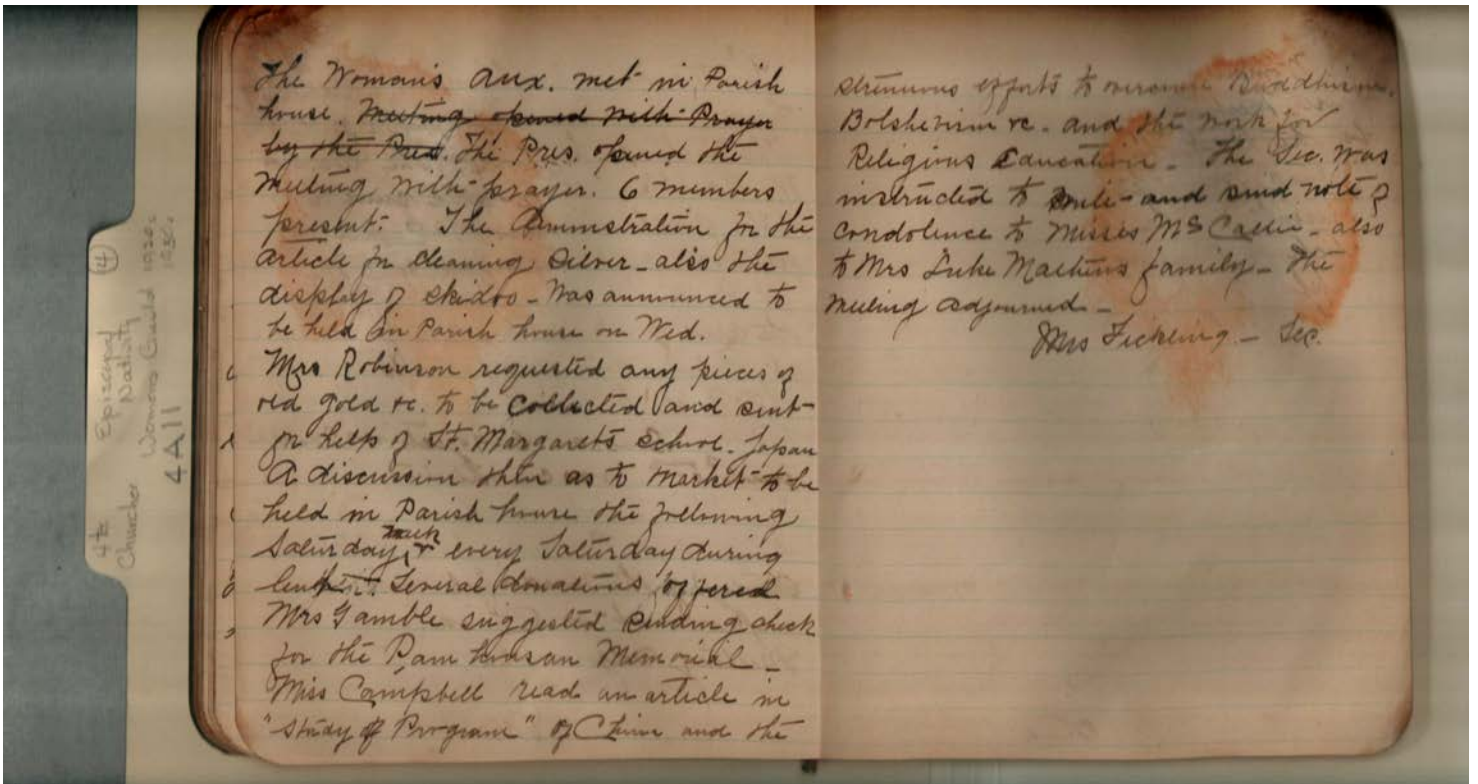 4ts
Churches
Episcopal
Nativity
Womens Guild 1920s
1930s
4A11
4
The Woman's Aux. met in Parish
house. Meeting opened with Prayer
by the Pres. The Pres. opened the
meeting with prayer. 6 members
present. The Deminstration for the
article for cleaning Silver - also the
display of skidoo - was announced to
be held in Parish house on Wed.
Mrs Robinson requested any pieces of
old gold &c. to be collected and sent
for help of St. Margarets school. Japan
A discussion then as to Market to be
held in Parish house the following
Saturday, & every Saturday during
lent Several donations offered
Mrs Gamble suggested sending check
for the Memorial -
Miss Campbell read an article in
"Study of Program" of China and the
strenuous efforts to overcome Buddhism,
Bolshevism &c. and the work for
Religious Education - The Sec. was
instructed to write and send note of
condolence to Misses - also
to Mrs Luke family - The
meeting adjourned -
Mrs Fickling - Sec.